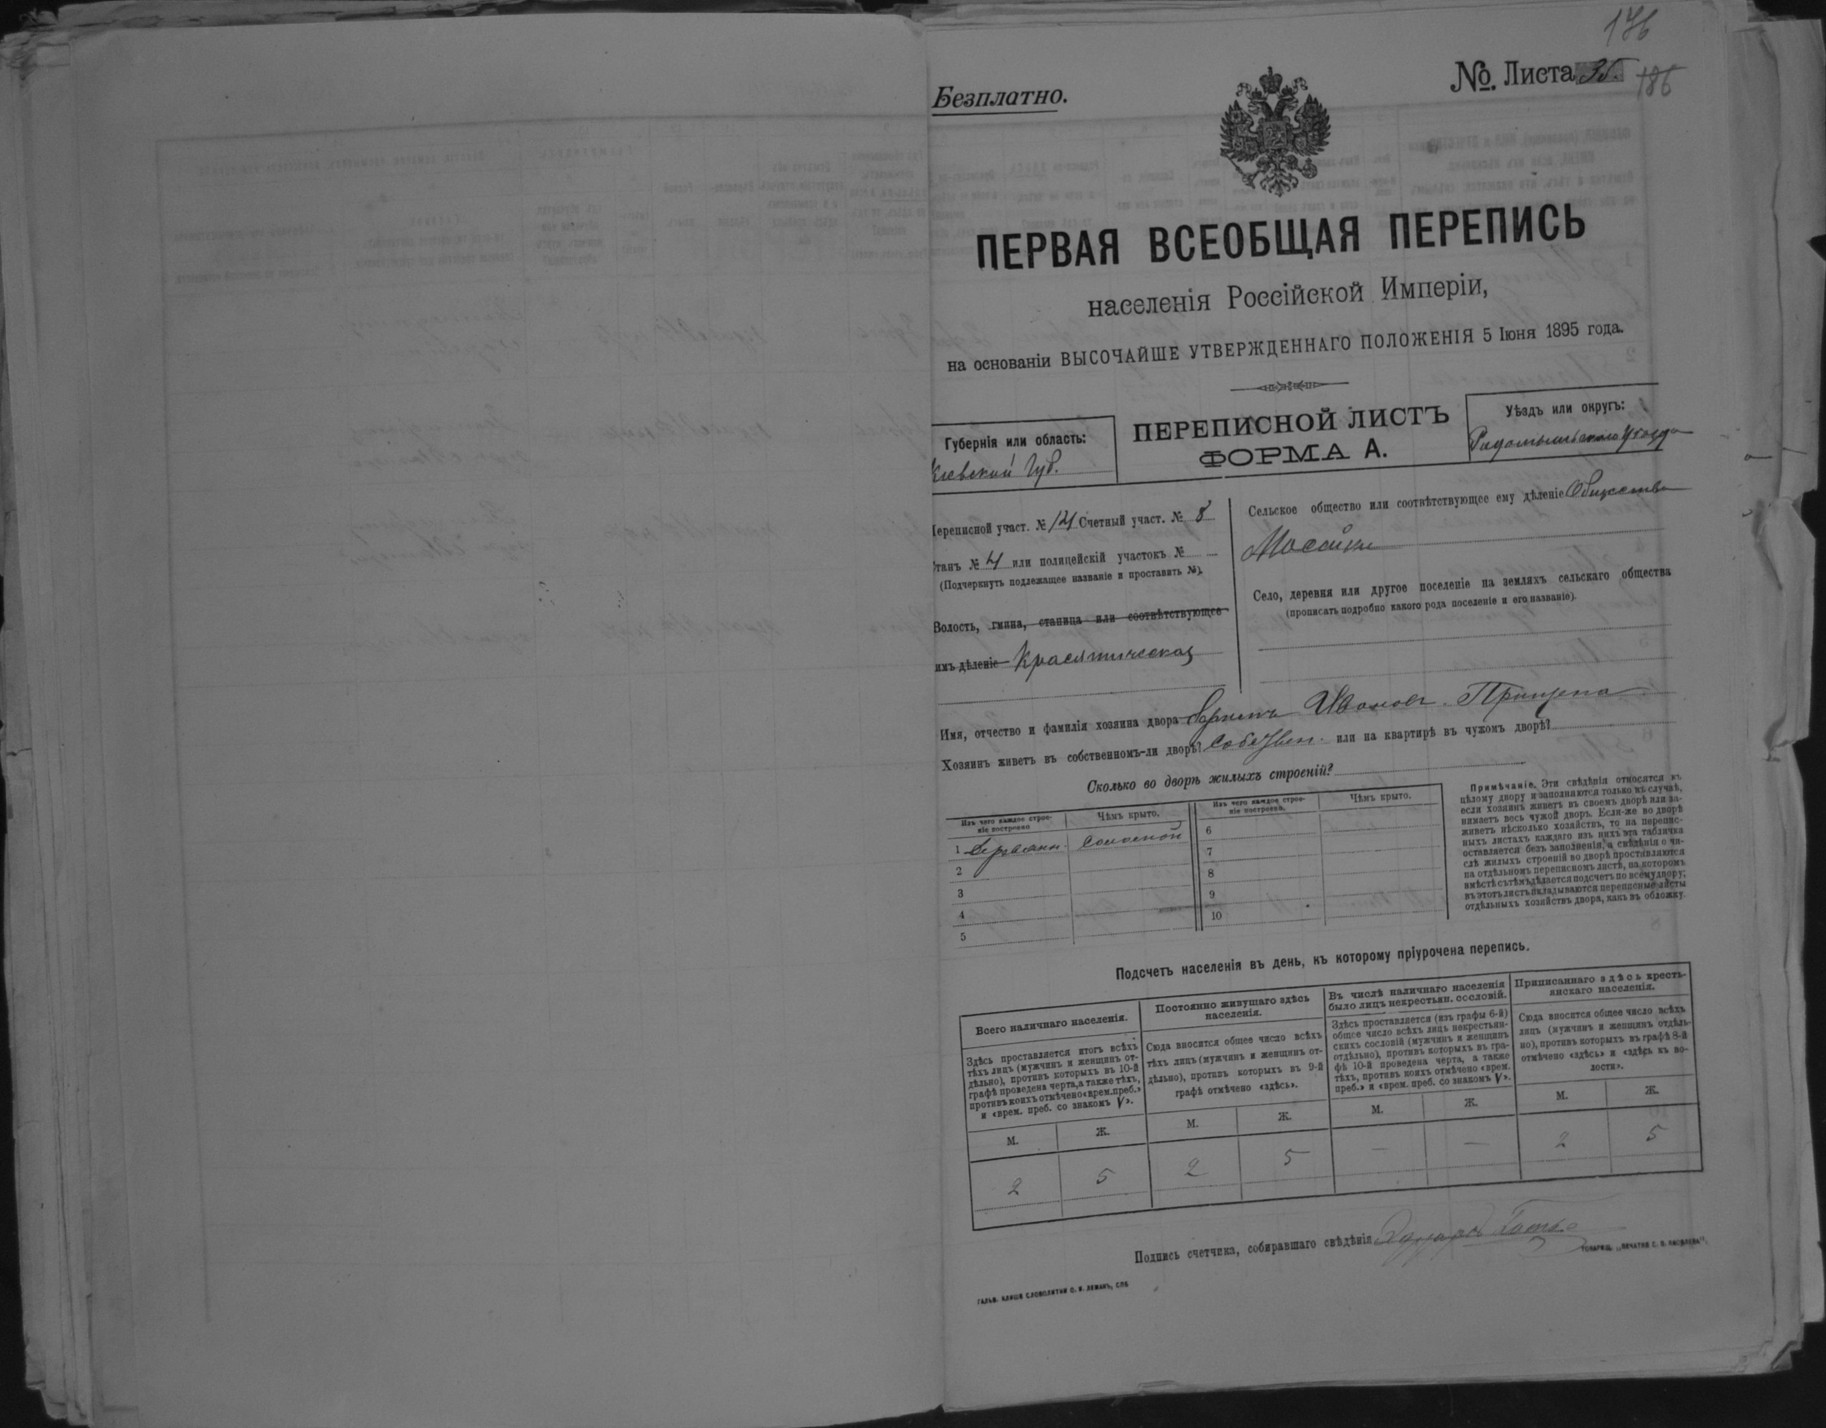 176
Безплатно.
№. Листа 35.
186
ПЕРВАЯ ВСЕОБЩАЯ ПЕРЕПИСЬ
населенія Россійской Имперіи,
на основаніи ВЫСОЧАЙШЕ УТВЕРЖДЕННАГО ПОЛОЖЕНІЯ 5 Іюня 1895 года.
Губернія или область:
Кіевской Губ.
ПЕРЕПИСНОЙ ЛИСТЪ
ФОРМА А.
Уѣздъ или округъ:
Радомысльскаго уѣзда
Переписной участ. № 14 Счетный участ. № 8
Станъ № 4 или полицейскій участокъ № —
(Подчеркнуть подлежащее названіе и проставить №).
Волость, гмина, станица или соотвѣтствующее
имъ дѣленіе Красятическая
Сельское общество или соотвѣтствующее ему дѣленіе Общество
Село, деревня или другое поселеніе на земляхъ сельскаго общества
(прописать подробно какого рода поселеніе и его названіе).
Имя, отчество и фамилія хозяина двора Иванов. Прищепа
Хозяинъ живетъ въ собственномъ-ли дворѣ? Собствен. или на квартирѣ въ чужомъ дворѣ?
Сколько во дворѣ жилыхъ строеній?
Изъ чего каждое строе-
ніе построено
Чѣмъ крыто.
1 деревянн. соломой
2
3
4
5
Изъ чего каждое строе-
ніе построено.
Чѣмъ крыто.
6
7
8
9
10
Примѣчаніе. Эти свѣдѣнія относятся къ
цѣлому двору и заполняются только въ случаѣ,
если хозяинъ живетъ въ своемъ дворѣ или за-
нимаетъ весь чужой дворъ. Если-же во дворѣ
живетъ нѣсколько хозяйствъ, то на перепис-
ныхъ листахъ каждаго изъ нихъ эта табличка
оставляется безъ заполненія, а свѣдѣнія о чи-
слѣ жилыхъ строеній во дворѣ проставляются
на отдѣльномъ переписномъ листѣ, на которомъ
вмѣстѣ съ тѣмъ дѣлается подсчетъ по всему двору;
въ этотъ листъ вкладываются переписные листы
отдѣльныхъ хозяйствъ двора, какъ въ обложку.
Подсчетъ населенія въ день, къ которому пріурочена перепись.
Всего наличнаго населенія.
Здѣсь проставляется итогъ всѣхъ
тѣхъ лицъ (мужчинъ и женщинъ от-
дѣльно), противъ которыхъ въ 10-й
графѣ проведена черта, а также тѣхъ,
противъ коихъ отмѣчено «врем. преб.»
и «врем. преб. со знакомъ V».
М. Ж.
2 5
Постоянно живущаго здѣсь
населенія.
Сюда вносится общее число всѣхъ
тѣхъ лицъ (мужчинъ и женщинъ от-
дѣльно), противъ которыхъ въ 9-й
графѣ отмѣчено «здѣсь».
М. Ж.
2 5
Въ числѣ наличнаго населенія
было лицъ некрестьян. сословій.
Здѣсь проставляется (изъ графы 6-й)
общее число всѣхъ лицъ некрестьян-
скихъ сословій (мужчинъ и женщинъ
отдѣльно), противъ которыхъ въ гра-
фѣ 10-й проведена черта, а также
тѣхъ, противъ коихъ отмѣчено «врем.
преб.» и «врем. преб. со знакомъ V».
М. Ж.
— —
Приписаннаго здѣсь кресть-
янскаго населенія.
Сюда вносится общее число всѣхъ
лицъ (мужчинъ и женщинъ отдѣль-
но), противъ которыхъ въ графѣ 8-й
отмѣчено «здѣсь» и «здѣсь въ во-
лости».
М. Ж.
2 5
Подпись счетчика, собиравшаго свѣдѣнія